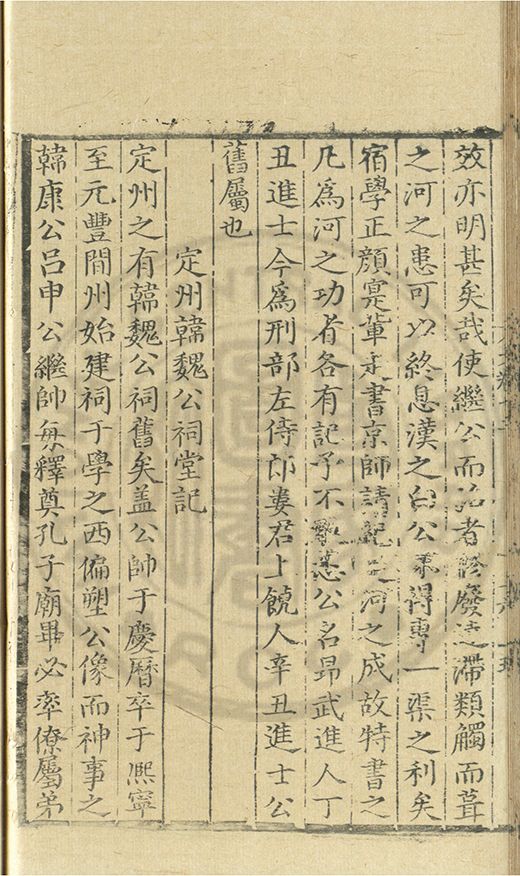 效亦明甚矣哉使繼公而治者修廢達滯類觸而葺
之河之患可以終息漢之白公不得專一渠之利矣
宿學正顏霆輩走書京師請記河之成故特書之
凡為河之功者各有記予不公名昻武進人丁
丑進士今為刑部左侍郎婁君上饒人辛丑進士公
舊屬也
定州韓魏公祠堂記
定州之有韓魏公祠舊矣盖公帥于慶曆卒于熈寧
至元豐間州始建祠于學之西偏塑公像而神事之
韓康公呂申公繼帥每釋奠孔子廟畢必率僚屬弟